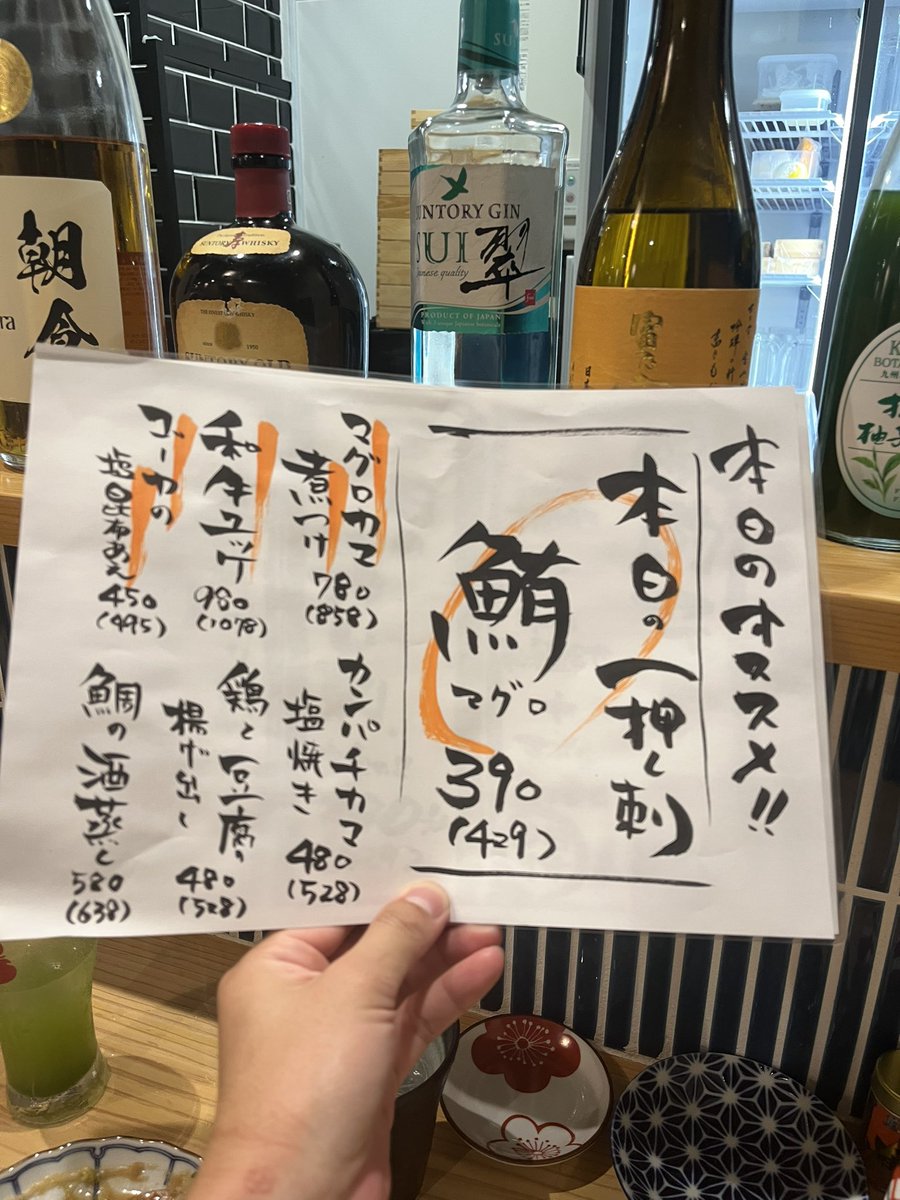 本日のオススメ!!
本日の一押し刺
鮪
マグロ
390
(429)
マグロカマ
煮つけ
780
(858)
カンパチカマ
塩焼き
480
(528)
和牛ユッケ
980
(1078)
鶏と豆腐の
揚げ出し
480
(528)
コーカの
塩昆布あえ
450
(495)
鯛の酒蒸し
580
(638)
朝倉
SUNTORY WHISKY
THE FINEST OLD WHISKY
since 1950
SUNTORY OLD
SUNTORY GIN
SUI
翠
Japanese quality
PRODUCT OF JAPAN